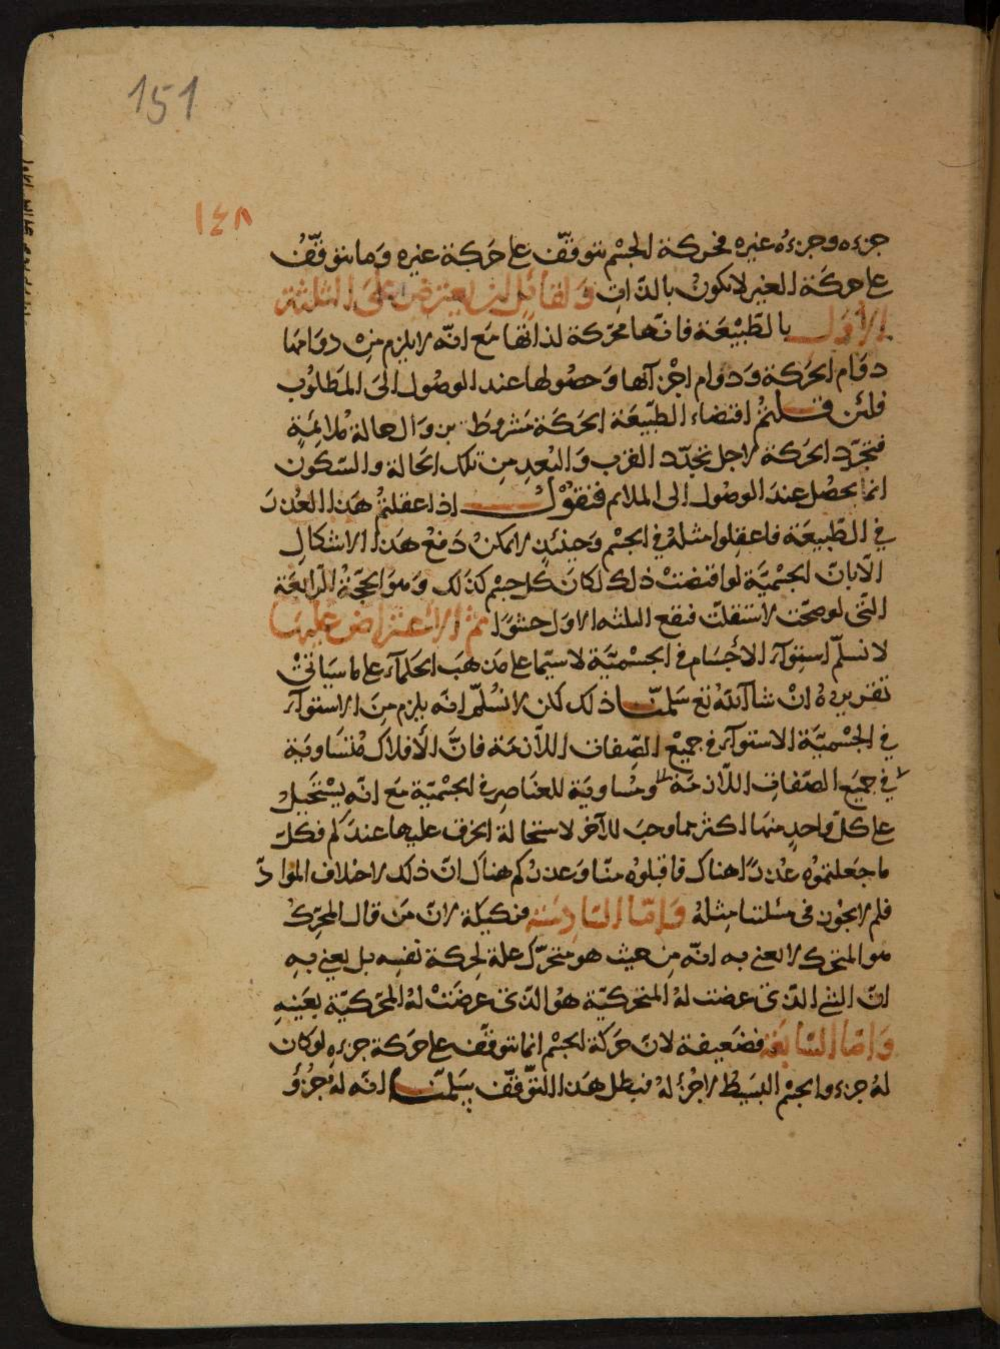 151
١٤٨
جزءه وجزءه غيره فحركة الجسم تتوقف على حركة غيره وما يتوقّف
على حركة الغير لا يكون بالذات ولقائل ان يعترض على الثلثة
الأول بالطّبيعة فانها محركة لذاتها مع انّه لا يلزم من دوامها
دوام الحركة ودوام اجزآئها وحصولها عند الوصول الى المطلوب
فلئن قلتم اقتضاء الطّبيعة الحركة مشروط بزوال حالة ملائمة
فتجدد الحركة لاجل تجدّد القرب والبعد من تلك الحالة والسّكون
انما يحصل عند الوصول الى الملائم فنقول اذا عقلتم هذا العذر
في الطّبيعة فاعقلوا مثله في الجسم وحينئذ لا يمكن دفع هذا الاشكال
الّا بانّ الجسميّة لو اقتضت ذلك لكان كل جسم كذلك وهو الحجّة الرابعة
التى لو صحّت لاستقلّت فتقع الثلثه الاول حشوا ثم الاعتراض عليها
لا نسلّم استوآء الأجسام في الجسميّة لا سيّما على مذهب الحكمآء على ما سياتى
تقريره ان شآ الله تع سلمنا ذلك لكن لا نسلّم انه يلزم من الاستوآء
في الجسميّة الاستوآء في جميع الصّفات اللّازمة فانّ الأفلاك متساوية
في جميع الصّفات اللّازمة ومساوية للعناصر في الجسميّة مع انّه يستحيل
على كلّ واحد منها اكثر مما وجب للآخر لاستحالة الخرق عليها عندكم فكلّ
ما جعلتموه عذرًا هناك فاقبلوه منّا وعذركم هناك انّ ذلك لاختلاف الموادّ
فلم لا يجوز في مسئلتنا مثله وامّا السّادسة فركيكة لانّ من قال المحرّك
هو المتحرك لا يعنى به انّه من حيث هو متحرّك علة لحركة نفسه بل يعنى به
انّ الشئ الذى عرضت له المتحركيّة هو الذى عرضت له المحركيّة بعينه
وامّا السّابعة فضعيفة لانّ حركة الجسم انما تتوقّف على حركة جزءه لو كان
له جزء والجسم البسيط لا جزء له فبطل هذا التوقّف سلمنا انه له جزؤ